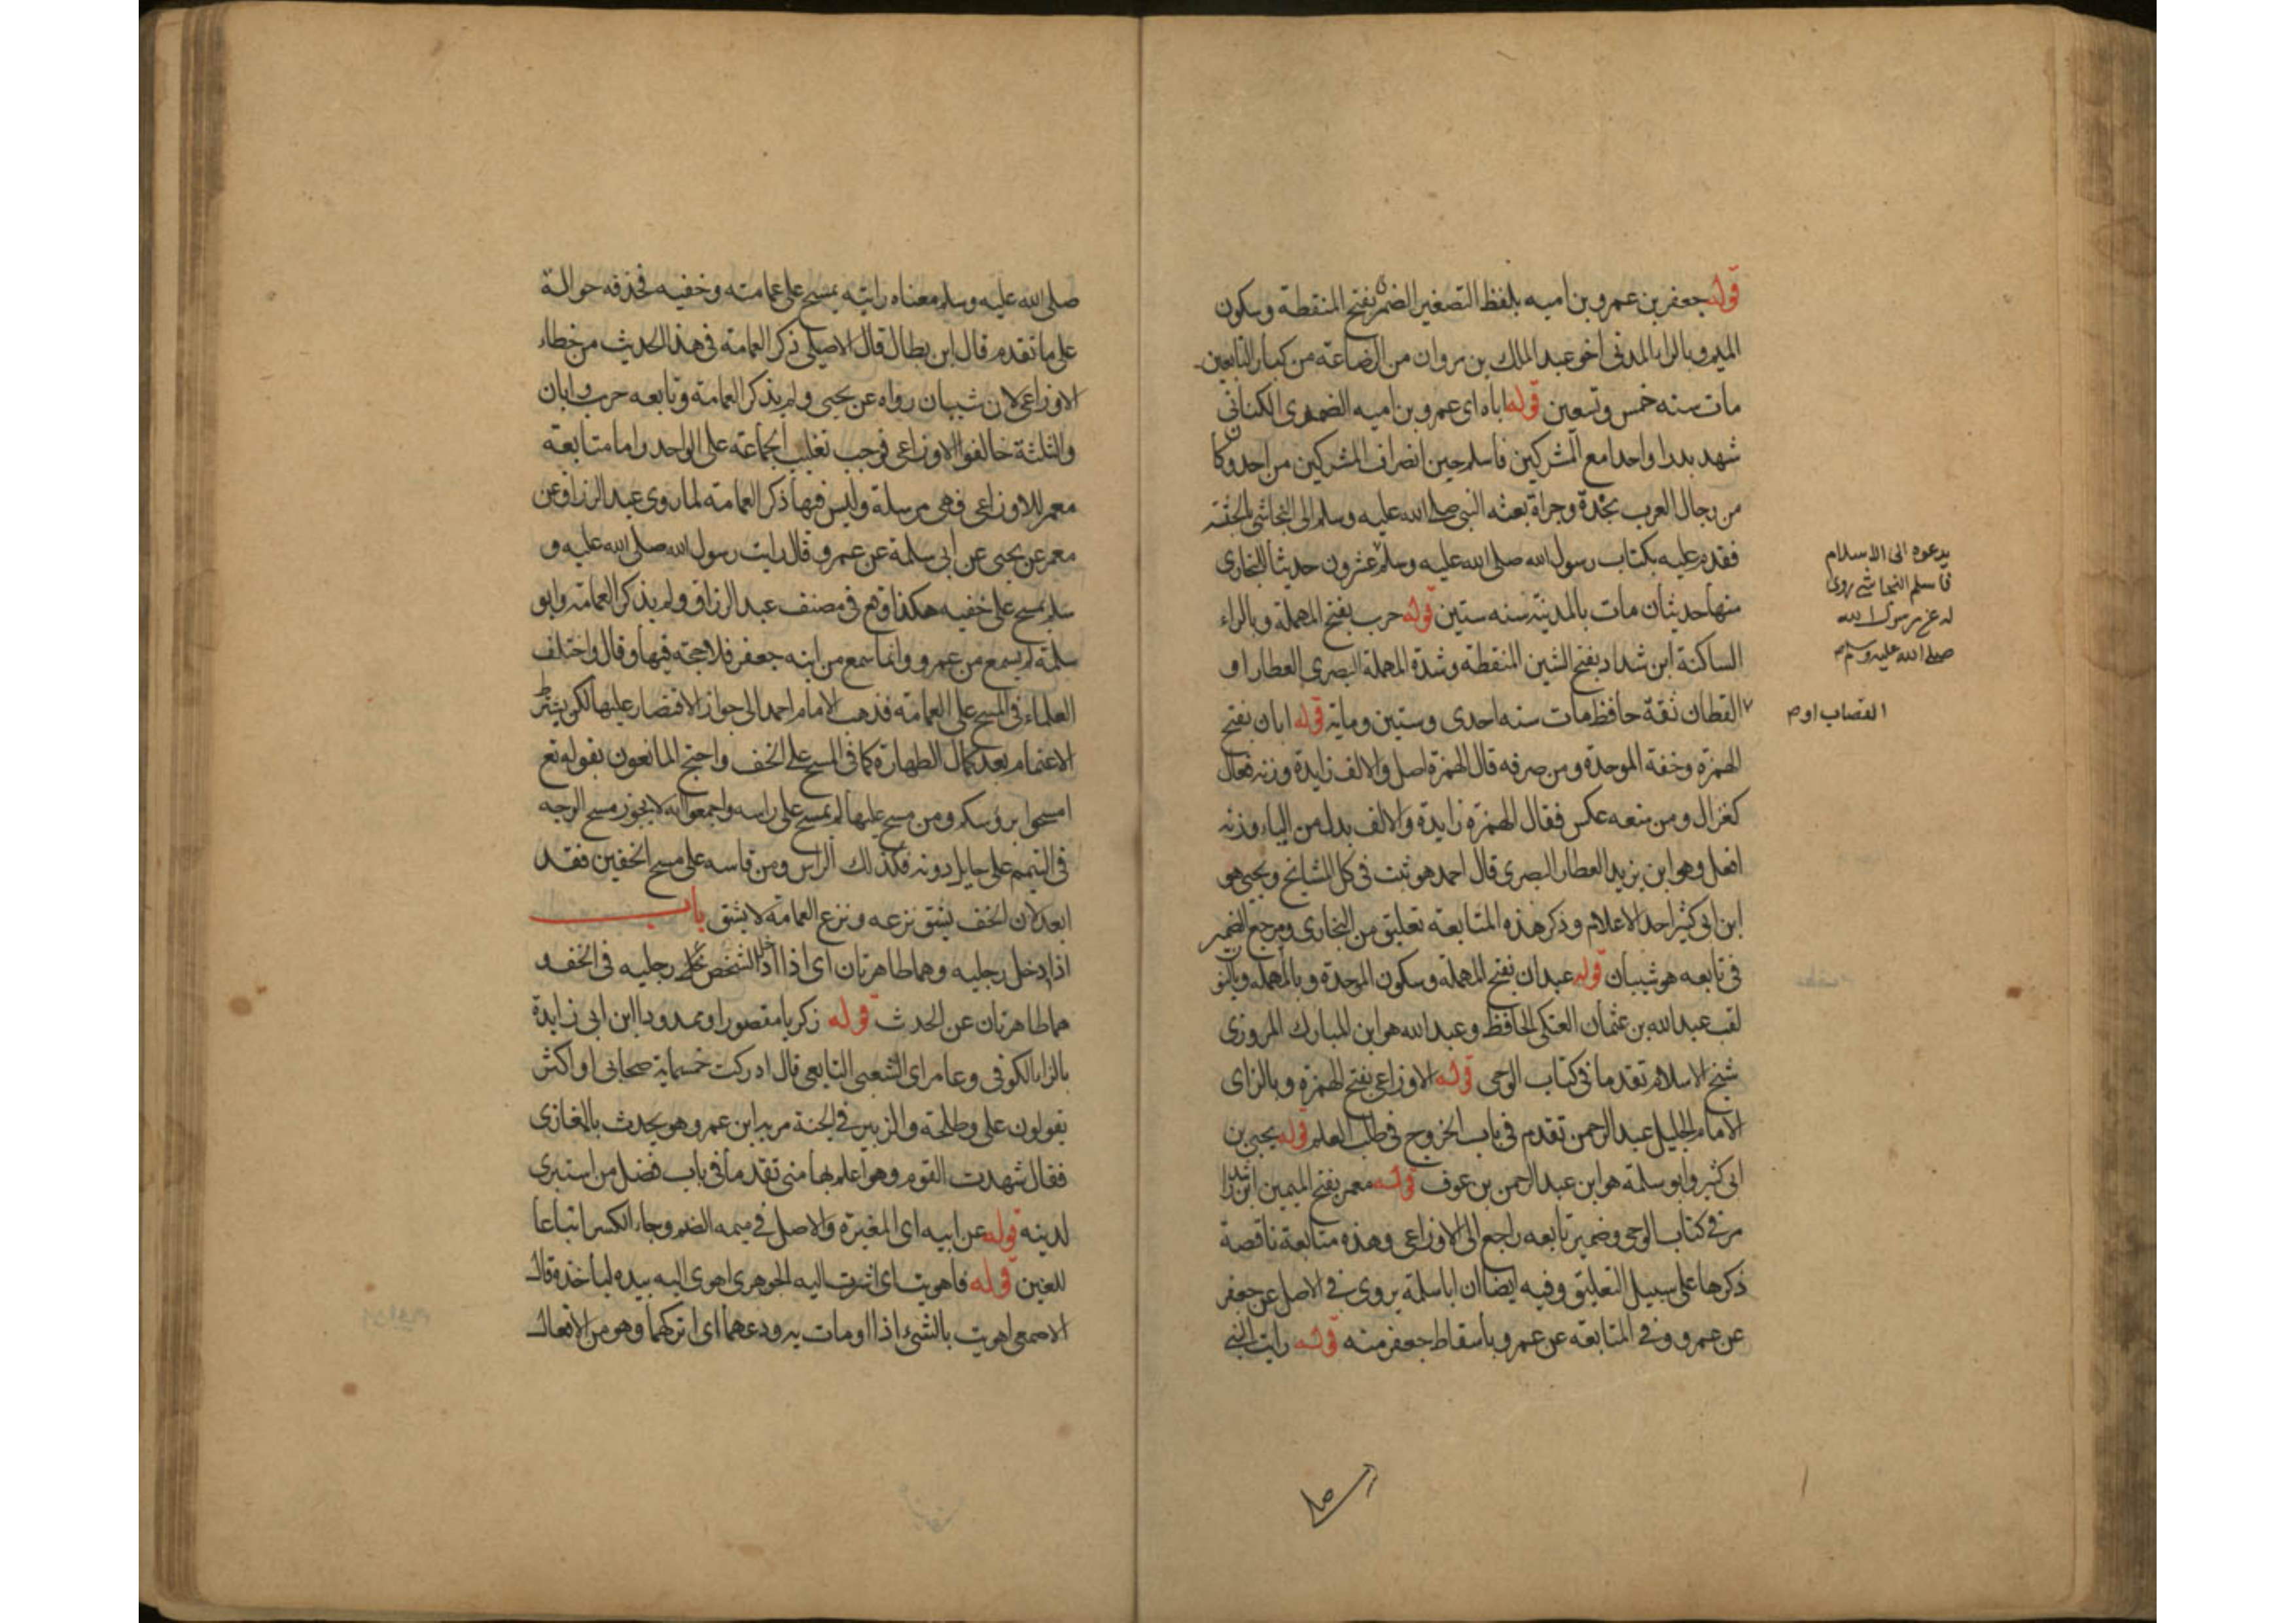 قوله جعفر بن عمرو بن اميه بلفظ التصغير الضمرى بفتح المنقطة وسكون
الميم وبالرا المدنى اخو عبد الملك بن مروان من الرضاعة من كبار التابعين
مات سنه خمس وتسعين قوله اباه اى عمرو بن اميه الضمرى الكنانى
شهد بدرا واحدا مع المشركين فاسلم حين انصراف المشركين من احد وكان
من رجال العرب نجدة وجراة بعثه النبى صلى الله عليه وسلم الى النجاشى بالحبشه
فقدم عليه بكتاب رسول الله صلى الله عليه وسلم عشرون حديثا للبخارى
يدعوه الى الاسلام
فاسلم النجاشى روى
له عن رسول الله
صلى الله عليه وسلم
منها حديثان مات بالمدينة سنه ستين قوله حرب بفتح المهملة وبالراء
الساكنة ابن شداد بفتح الشين المنقطة وشدة المهملة البصرى العطار او
القطان ثقة حافظ مات سنه احدى وستين وماية قوله ابان بفتح
القصاب او م
الهمزة وخفة الموحدة ومن صرفه قال الهمزة اصل والالف زايدة وزنه فعال
كغزال ومن منعه عكس فقال الهمزة زايدة والالف بدل من الياء وزنه
افعل وهو ابن يزيد العطار البصرى قال احمد هو ثبت فى كل المشايخ ويحيى هو
ابن ابى كثير احد الاعلام وذكر هذه المتابعة تعليق من البخارى ومرجع الضمير
فى تابعه هو شيبان قوله عبدان بفتح المهملة وسكون الموحدة وبالمهملة وبالنون
لقب عبد الله بن عثمان العتكى الحافظ وعبد الله هو ابن المبارك المروزى
شيخ الاسلام تقدما فى كتاب الوحى قوله الاوزاعى بفتح الهمزة وبالزاى
الامام الجليل عبد الرحمن تقدم فى باب الخروج فى طلب العلم قوله يحيى بن
ابى كثير وابو سلمة هو ابن عبد الرحمن بن عوف قوله معمر بفتح الميمين ابن راشد
مر فى كتاب الوحى وضمير تابعه راجع الى الاوزاعى وهذه متابعة ناقصة
ذكرها على سبيل التعليق وفيه ايضا ان ابا سلمة يروى فى الاصل عن جعفر
عن عمرو وفى المتابعة عن عمرو باسقاط جعفر منه قوله رايت النبى
صلى الله عليه وسلم معناه رايته يمسح على عمامته وخفيه فحذفه حوالة
على ما تقدم قال ابن بطال قال الاصيلى ذكر العمامة فى هذا الحديث من خطاء
الاوزاعى لان شيبان رواه عن يحيى ولم يذكر العمامة وتابعه حرب وابان
والثلثة خالفوا الاوزاعى فوجب تغليب الجماعة على الواحد واما متابعة
معمر للاوزاعى فهى مرسلة وليس فيها ذكر العمامة لما روى عبد الرزاق عن
معمر عن يحيى عن ابى سلمة عن عمرو قال رايت رسول الله صلى الله عليه و
سلم يمسح على خفيه هكذا وقع فى مصنف عبد الرزاق ولم يذكر العمامة وابو
سلمة لم يسمع من عمرو وانما سمع من ابنه جعفر فلا حجة فيها وقال واختلف
العلماء فى المسح على العمامة فذهب الامام احمد الى جواز الاقتصار عليها لكن يشترط
الاعتمام بعد كمال الطهارة كما فى المسح على الخف واحتج المانعون بقوله تع
امسحوا برؤسكم ومن مسح عليها لم يمسح على راسه واجمعوا انه لا يجوز مسح الوجه
فى التيمم على حايل دونه فكذلك الراس ومن قاسه على مسح الخفين فقد
ابعد لان الخف يشق نزعه ونزع العمامة لا يشق باب
اذا ادخل رجليه وهما طاهرتان اى اذا ادخل الشخص رجليه فى الخف
هما طاهرتان عن الحدث قوله زكريا مقصورا وممدودا ابن ابى زايدة
بالزا الكوفى وعامر اى الشعبى التابعى قال ادركت خمسماية صحابى او اكثر
يقولون على وطلحة والزبير فى الجنة مر به ابن عمر وهو يحدث بالمغازى
فقال شهدت القوم وهو اعلم بها منى تقدما فى باب فضل من استبرى
لدينه قوله عن ابيه اى المغيرة والاصل فى ميمه الضم وجاء الكسر اتباعا
للغين قوله فاهويت اى اشرت اليه الجوهرى اهوى اليه بيده لياخذه قال
الاصمعى اهويت بالشئ اذا اومات به ودعهما اى اتركهما وهو من الافعال